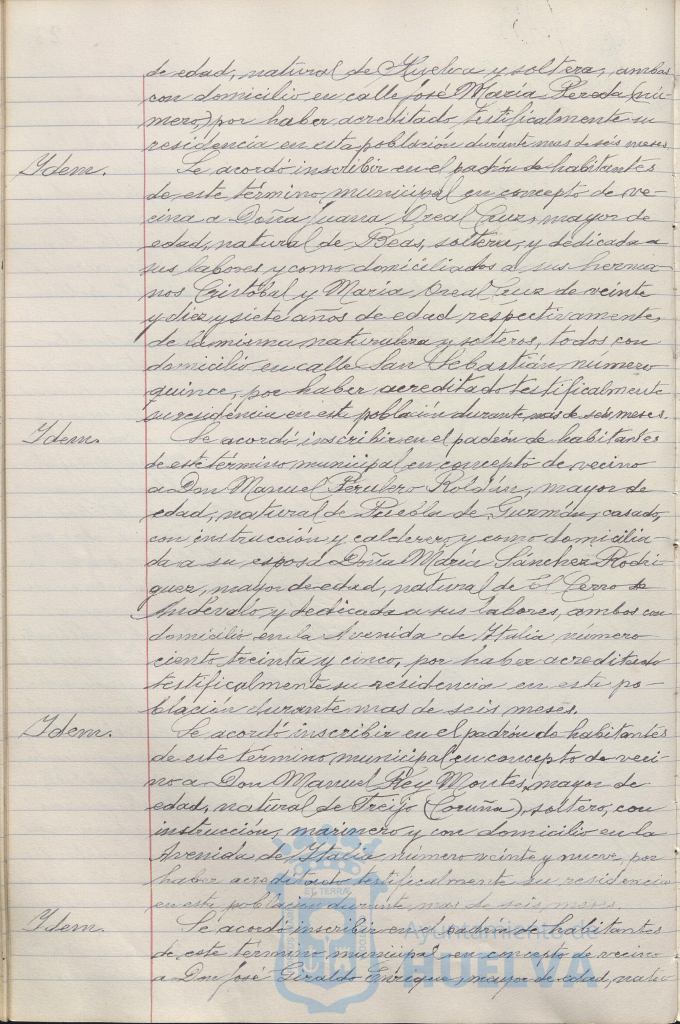 de edad, natural de Huelva y soltera, ambas
con domicilio en calle José María Pereda (nú-
mero,) por haber acreditado, testificalmente su
residencia en esta población durante mas de seis meses
Idem. Se acordó inscribir en el padrón de habitantes
de este término municipal en concepto de ve-
cina a Doña Juana Oreal Cruz, mayor de
edad, natural de Beas, soltera, y dedicada a
sus labores, y como domiciliados a sus herma-
nos Cristóbal y María Oreal Cruz de veinte
y diez y siete años de edad, respectivamente,
de la misma naturaleza y solteros, todos con
domicilio en calle San Sebastián, número
quince, por haber acreditado testificalmente
su residencia en esta población durante mas de seis meses.
Idem. Se acordó inscribir en el padrón de habitantes
de este término municipal en concepto de vecino
a Don Manuel Perulero Roldán, mayor de
edad, natural de Puebla de Guzmán, casado,
con instrucción y caldedero, y como domicilia-
da a su esposa Doña María Sánchez Rodri-
guez, mayor de edad, natural de El Cerro de
Andévalo y dedicada a sus labores, ambos con
domicilio en la Avenida de Italia, número
ciento treinta y cinco, por haber acreditado
testificalmente su residencia en esta po-
blación durante mas de seis meses.
Idem. Se acordó inscribir en el padrón de habitantes
de este término municipal en concepto de veci-
no a Don Manuel Rey Montes, mayor de
edad, natural de Freijo (Coruña), soltero, con
instrucción, marinero y con domicilio en la
Avenida de Italia, número veinte y nueve, por
haber acreditado testificalmente su residencia
en esta población durante mas de seis meses.
Idem. Se acordó inscribir en el padrón de habitantes
de este término municipal en concepto de vecino
a Don José Giraldo Enrique, mayor de edad, natu-
Ayuntamiento de
HUELVA